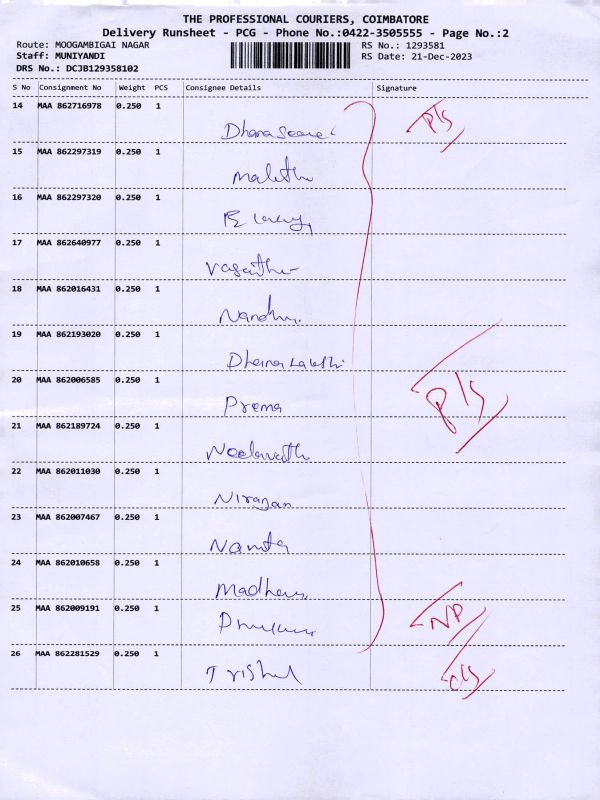 THE PROFESSIONAL COURIERS, COIMBATORE
Delivery Runsheet - PCG - Phone No.:0422-3505555 - Page No.:2
Route: MOOGAMBIGAI NAGAR RS No.: 1293581
Staff: MUNIYANDI RS Date: 21-Dec-2023
DRS No.: DCJB129358102
S No Consignment No Weight PCS Consignee Details Signature
14 MAA 862716978 0.250 1
P/S
15 MAA 862297319 0.250 1
16 MAA 862297320 0.250 1
17 MAA 862640977 0.250 1
Vasantha
18 MAA 862016431 0.250 1
19 MAA 862193020 0.250 1
20 MAA 862006585 0.250 1
Prema P/S
21 MAA 862189724 0.250 1
22 MAA 862011030 0.250 1
Nirajan
23 MAA 862007467 0.250 1
24 MAA 862010658 0.250 1
25 MAA 862009191 0.250 1
NP
26 MAA 862281529 0.250 1
c/s